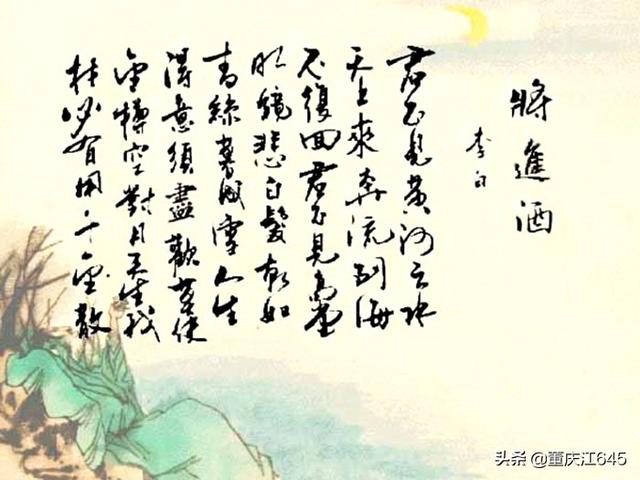 將進酒
李白
君不見黃河之水
天上來奔流到海
不復回君不見高堂
明鏡悲白髮朝如
青絲暮成雪人生
得意須盡歡莫使
金樽空對月天生我
材必有用千金散
头条 @董庆江645